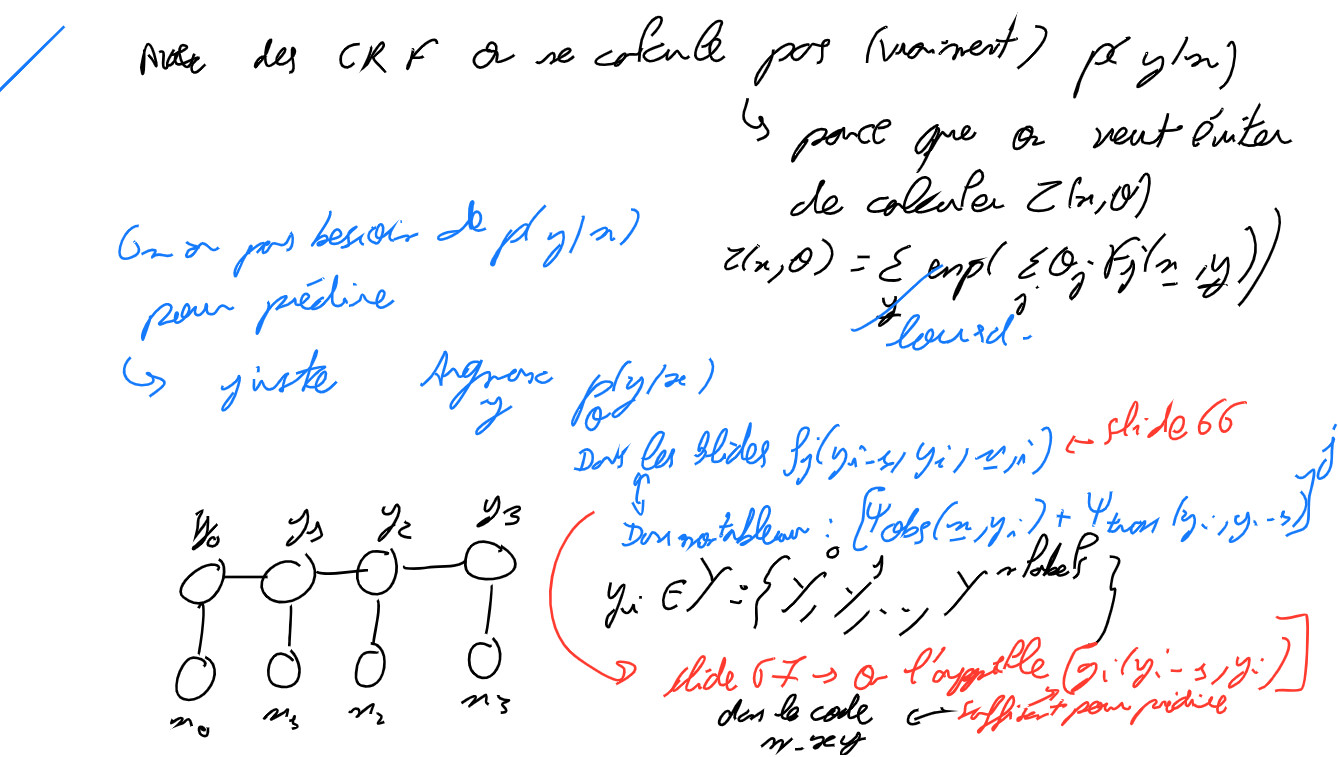 Avec des CRF on ne calcule pas (vraiment) p(y/x)
↳ parce que on veut éviter
de calculer Z(x,θ)
Z(x,θ) = Σ_y exp( Σ_j θ_j F_j(x, y))
lourd.
On a pas besoin de p(y/x)
pour prédire
↳ juste Argmax_y p_θ(y/x)
Dans les slides f_j(y_{i-1}, y_i, x, i) ← slide 66
↕
Dans mon tableau : [Ψ_obs(x, y_i) + Ψ_tran(y_i, y_{i-1})]_j
y_i ∈ Y = {Y^0, Y^1, .., Y^{n labels}}
y_0 y_1 y_2 y_3
x_0 x_1 x_2 x_3
slide 67 → on l'appelle [g_i(y_{i-1}, y_i)]
dans le code ← suffisant pour prédire
m_xy